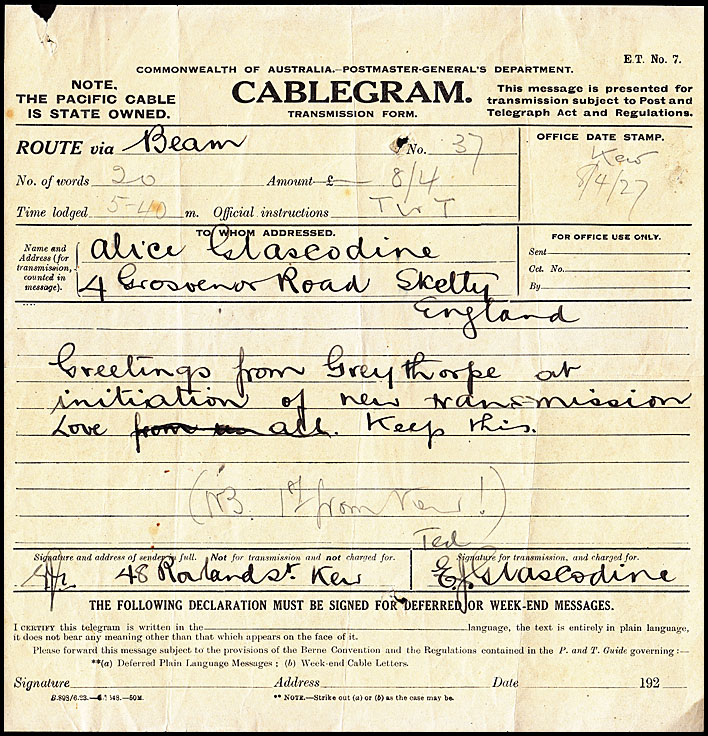 E.T. No. 7.
COMMONWEALTH OF AUSTRALIA.—POSTMASTER-GENERAL'S DEPARTMENT.
NOTE.
THE PACIFIC CABLE
IS STATE OWNED.
CABLEGRAM.
TRANSMISSION FORM.
This message is presented for
transmission subject to Post and
Telegraph Act and Regulations.
ROUTE via Beam No. 37
OFFICE DATE STAMP.
Kew
8/4/27
No. of words 20 Amount—£ 8/4
Time lodged 5-40 m. Official instructions TWT
TO WHOM ADDRESSED.
Name and
Address (for
transmission,
counted in
message).
Alice Glascodine
4 Grosvenor Road Sketty
England
FOR OFFICE USE ONLY.
Sent
Cct. No.
By
Greetings from Greythorpe at
initiation of new transmission
Love from us all. Keep this.
(NB. 1st from Kew!)
Ted
Signature and address of sender in full. Not for transmission and not charged for.
48 Rowland St. Kew
Signature for transmission, and charged for.
E J Glascodine
THE FOLLOWING DECLARATION MUST BE SIGNED FOR DEFERRED OR WEEK-END MESSAGES.
I CERTIFY this telegram is written in the language, the text is entirely in plain language,
it does not bear any meaning other than that which appears on the face of it.
Please forward this message subject to the provisions of the Berne Convention and the Regulations contained in the P. and T. Guide governing:—
**(a) Deferred Plain Language Messages; (b) Week-end Cable Letters.
Signature Address Date 192
** NOTE.—Strike out (a) or (b) as the case may be.